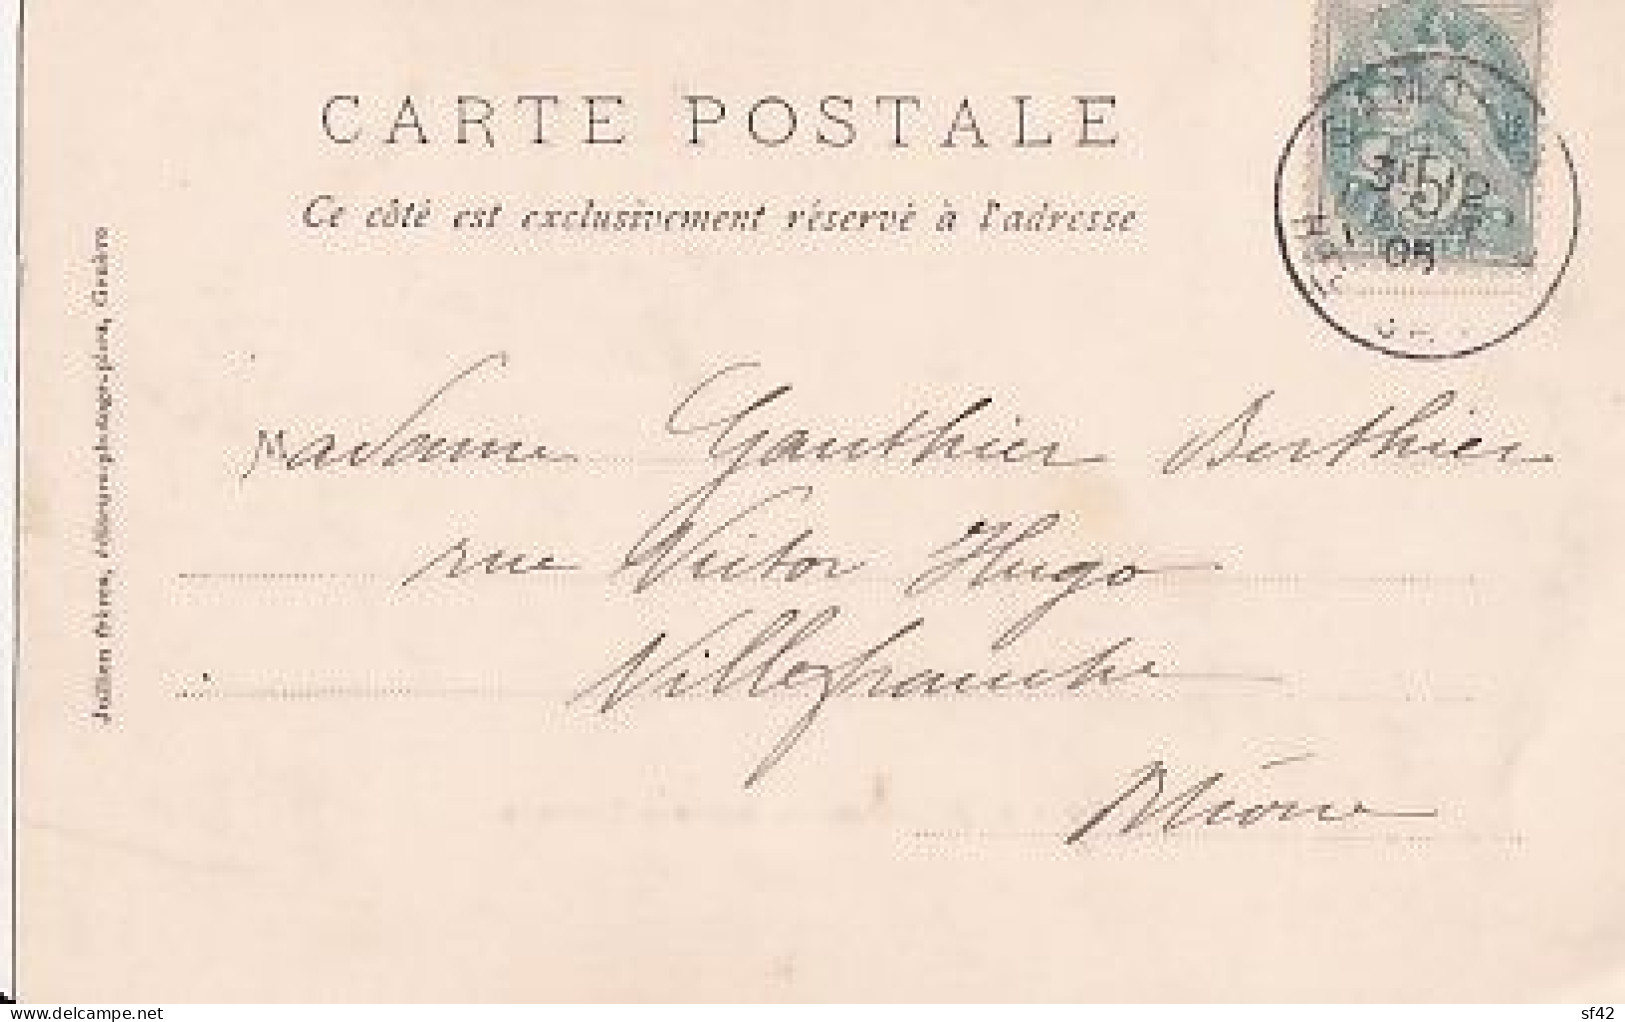 CARTE POSTALE
Ce côté est exclusivement réservé à l'adresse
Jullien frères, éditeurs-photogr.-phot., Genève
5
05
Madame Gauthier Berthier
rue Victor Hugo
Villefranche
Rhône
delcampe.net
sf42